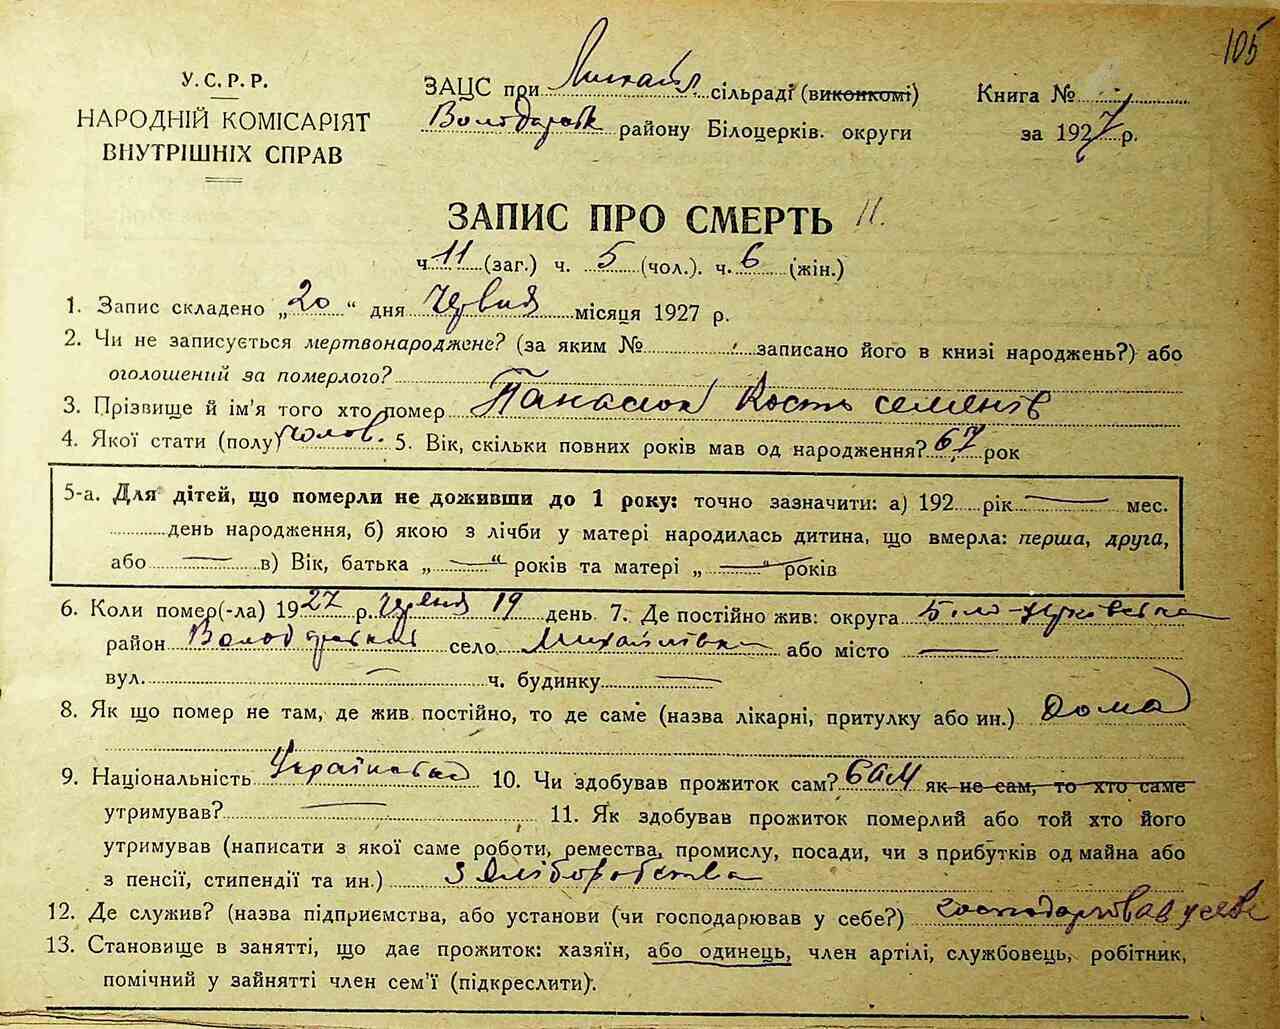 105
У.С.Р.Р.
НАРОДНІЙ КОМІСАРІЯТ
ВНУТРІШНІХ СПРАВ
ЗАЦС при Михайл сільраді (виконкомі)
Володарськ району Білоцерків. округи
Книга №
за 1927 р.
ЗАПИС ПРО СМЕРТЬ 11.
ч. 11 (заг.) ч. 5 (чол.). ч. 6 (жін.)
1. Запис складено „20“ дня червня місяця 1927 р.
2. Чи не записується мертвонароджене? (за яким № записано його в книзі народжень?) або
оголошений за померлого?
3. Прізвище й ім'я того хто помер Панасюк Кость Семенів
4. Якої стати (полу) чолов. 5. Вік, скільки повних років мав од народження? 67 рок
5-а. Для дітей, що померли не доживши до 1 року: точно зазначити: а) 192 рік — мес.
день народження, б) якою з лічби у матері народилась дитина, що вмерла: перша, друга,
або — в) Вік, батька „—“ років та матері „—“ років
6. Коли помер(-ла) 1927 р. червня 19 день. 7. Де постійно жив: округа Біло-церківська
район Володарський село Михайлівка або місто —
вул. — ч. будинку —
8. Як що помер не там, де жив постійно, то де саме (назва лікарні, притулку або ин.) дома
9. Національність Український 10. Чи здобував прожиток сам? сам як не сам, то хто саме
утримував? — 11. Як здобував прожиток померлий або той хто його
утримував (написати з якої саме роботи, ремества, промислу, посади, чи з прибутків од майна або
з пенсії, стипендії та ин.) з хліборобства
12. Де служив? (назва підприємства, або установи (чи господарював у себе?) господарював у себе
13. Становище в занятті, що дає прожиток: хазяїн, або одинець, член артілі, службовець, робітник,
помічний у зайнятті член сем'ї (підкреслити).